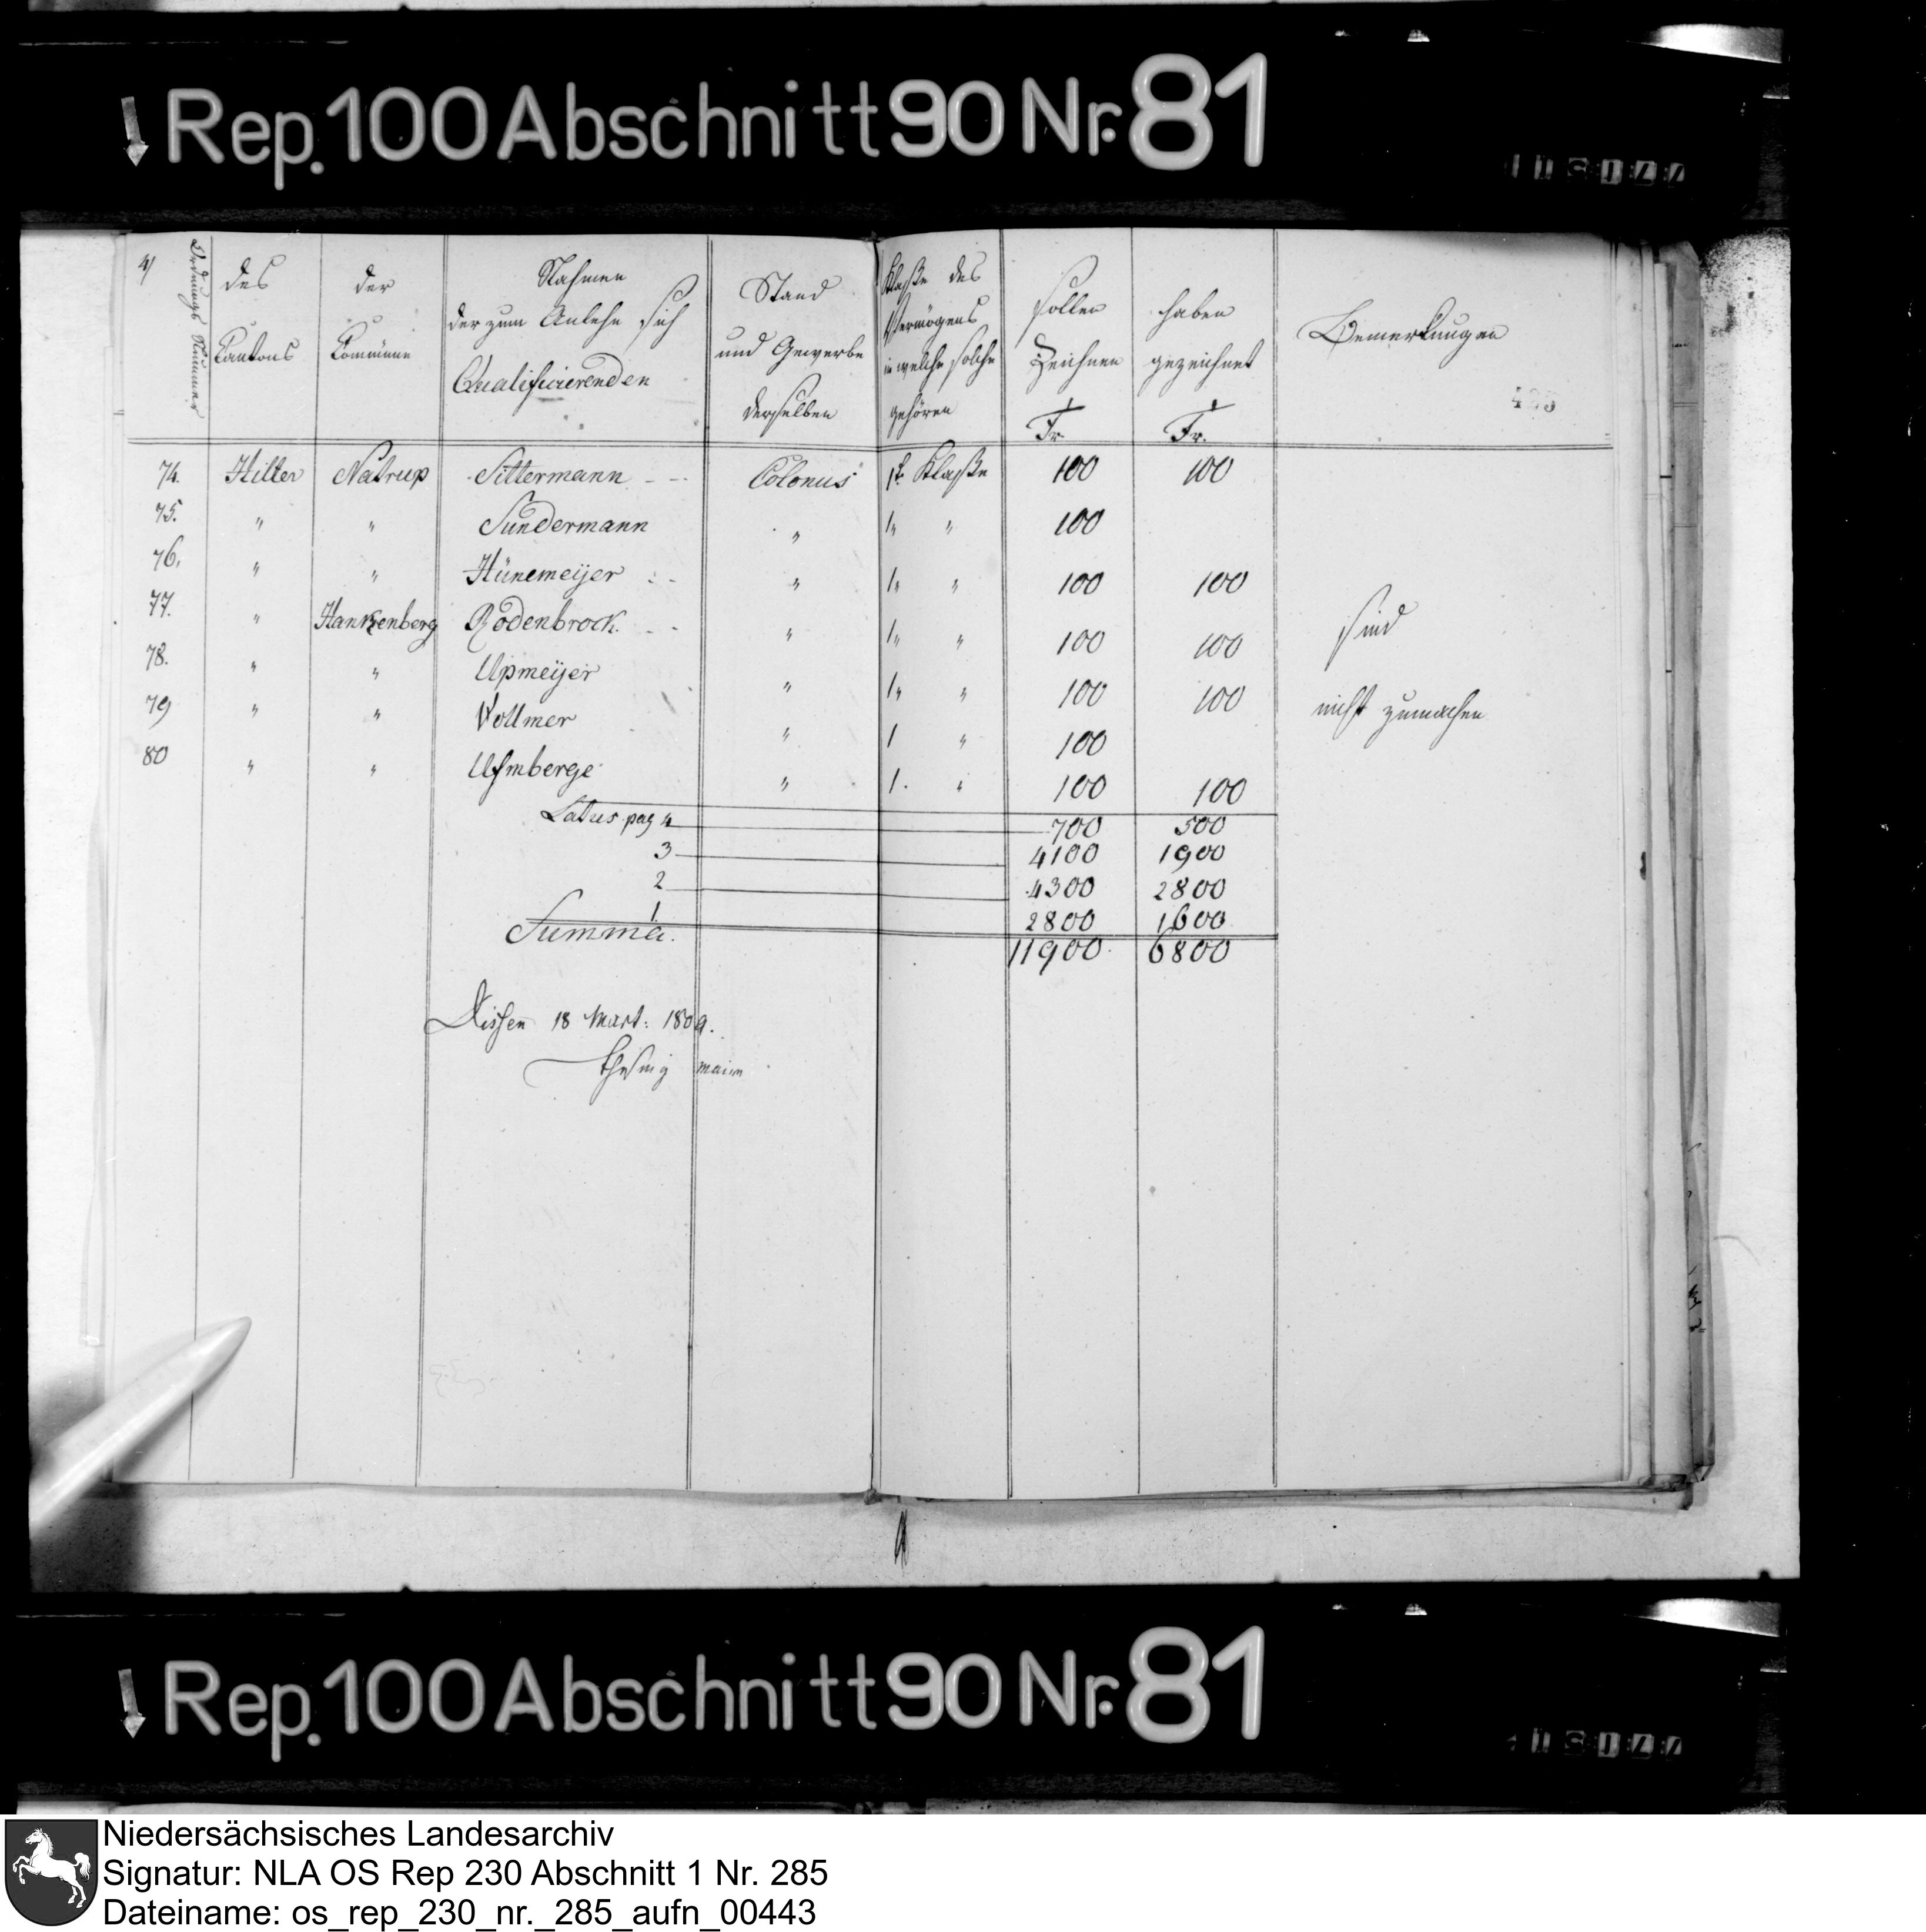 Rep. 100 Abschnitt 90 Nr. 81
4/
Ordnungs Nummer
des Cantons
der Commüne
Nahmen der zum Anlehn sich Qualificierenden
Stand und Gewerbe derselben
Klaße des Vermögens in welche solche gehören
sollen Zeichnen Fr.
haben gezeichnet Fr.
Bemerkungen
74. Hilter Natrup Sittermann - - Colonus 1t Klaße 100 100
75. " " Sundermann " 1" " 100
76. " " Hünemeijer : - " 1" " 100 100
77. " Hankenberg Rodenbrock. - - " 1" " 100 100 sind
78. " " Upmeijer " 1" " 100 100 nicht zumachen
79 " " Vollmer " 1 " 100
80 " " " 1. " 100 100
Latus pag 4 700 500
3 4100 1900
2 4300 2800
1 2800 1600
Summa. 11900 6800
Dissen 18 Mart: 1809.
maire
Rep. 100 Abschnitt 90 Nr. 81
Niedersächsisches Landesarchiv
Signatur: NLA OS Rep 230 Abschnitt 1 Nr. 285
Dateiname: os_rep_230_nr._285_aufn_00443